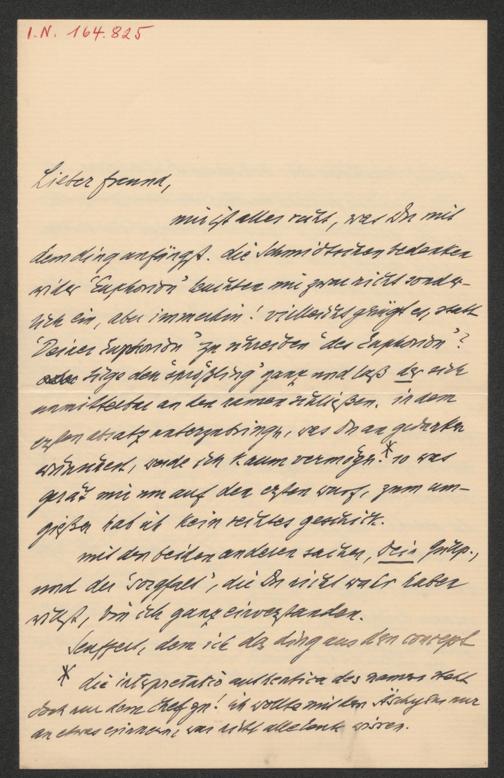 I.N. 164.825
Lieber freund,
mir ist alles recht, was Du mit
dem ding anfängst. die Schmidtschen bedenken
wider "Euphorion" leuchten mir zwar nicht sonder-
lich ein, aber immerhin! vielleicht genügt es, statt
"Deines Euphorion" zu schreiben "des Euphorion"?
oder tilge den "sprößling" ganz und laß der sich
unmittelbar an den namen schließen. in dem
ersten absatz unterzubringen, was Du an gedanken
wünschest, werde ich kaum vermögen.* so was
gerät mir nur auf den ersten wurf, zum um-
gießen hab ich kein rechtes geschick.
mit den beiden anderen sachen, dein
und der "sorgfalt", die Du nicht haben
willst, bin ich ganz einverstanden.
Seuffert, dem ich das ding aus dem concept
* die interpretatio authentica des namens steht
doch nur dem Chef zu! ich wollte mit den nur
an etwas erinnern, was nicht alle leute wissen.